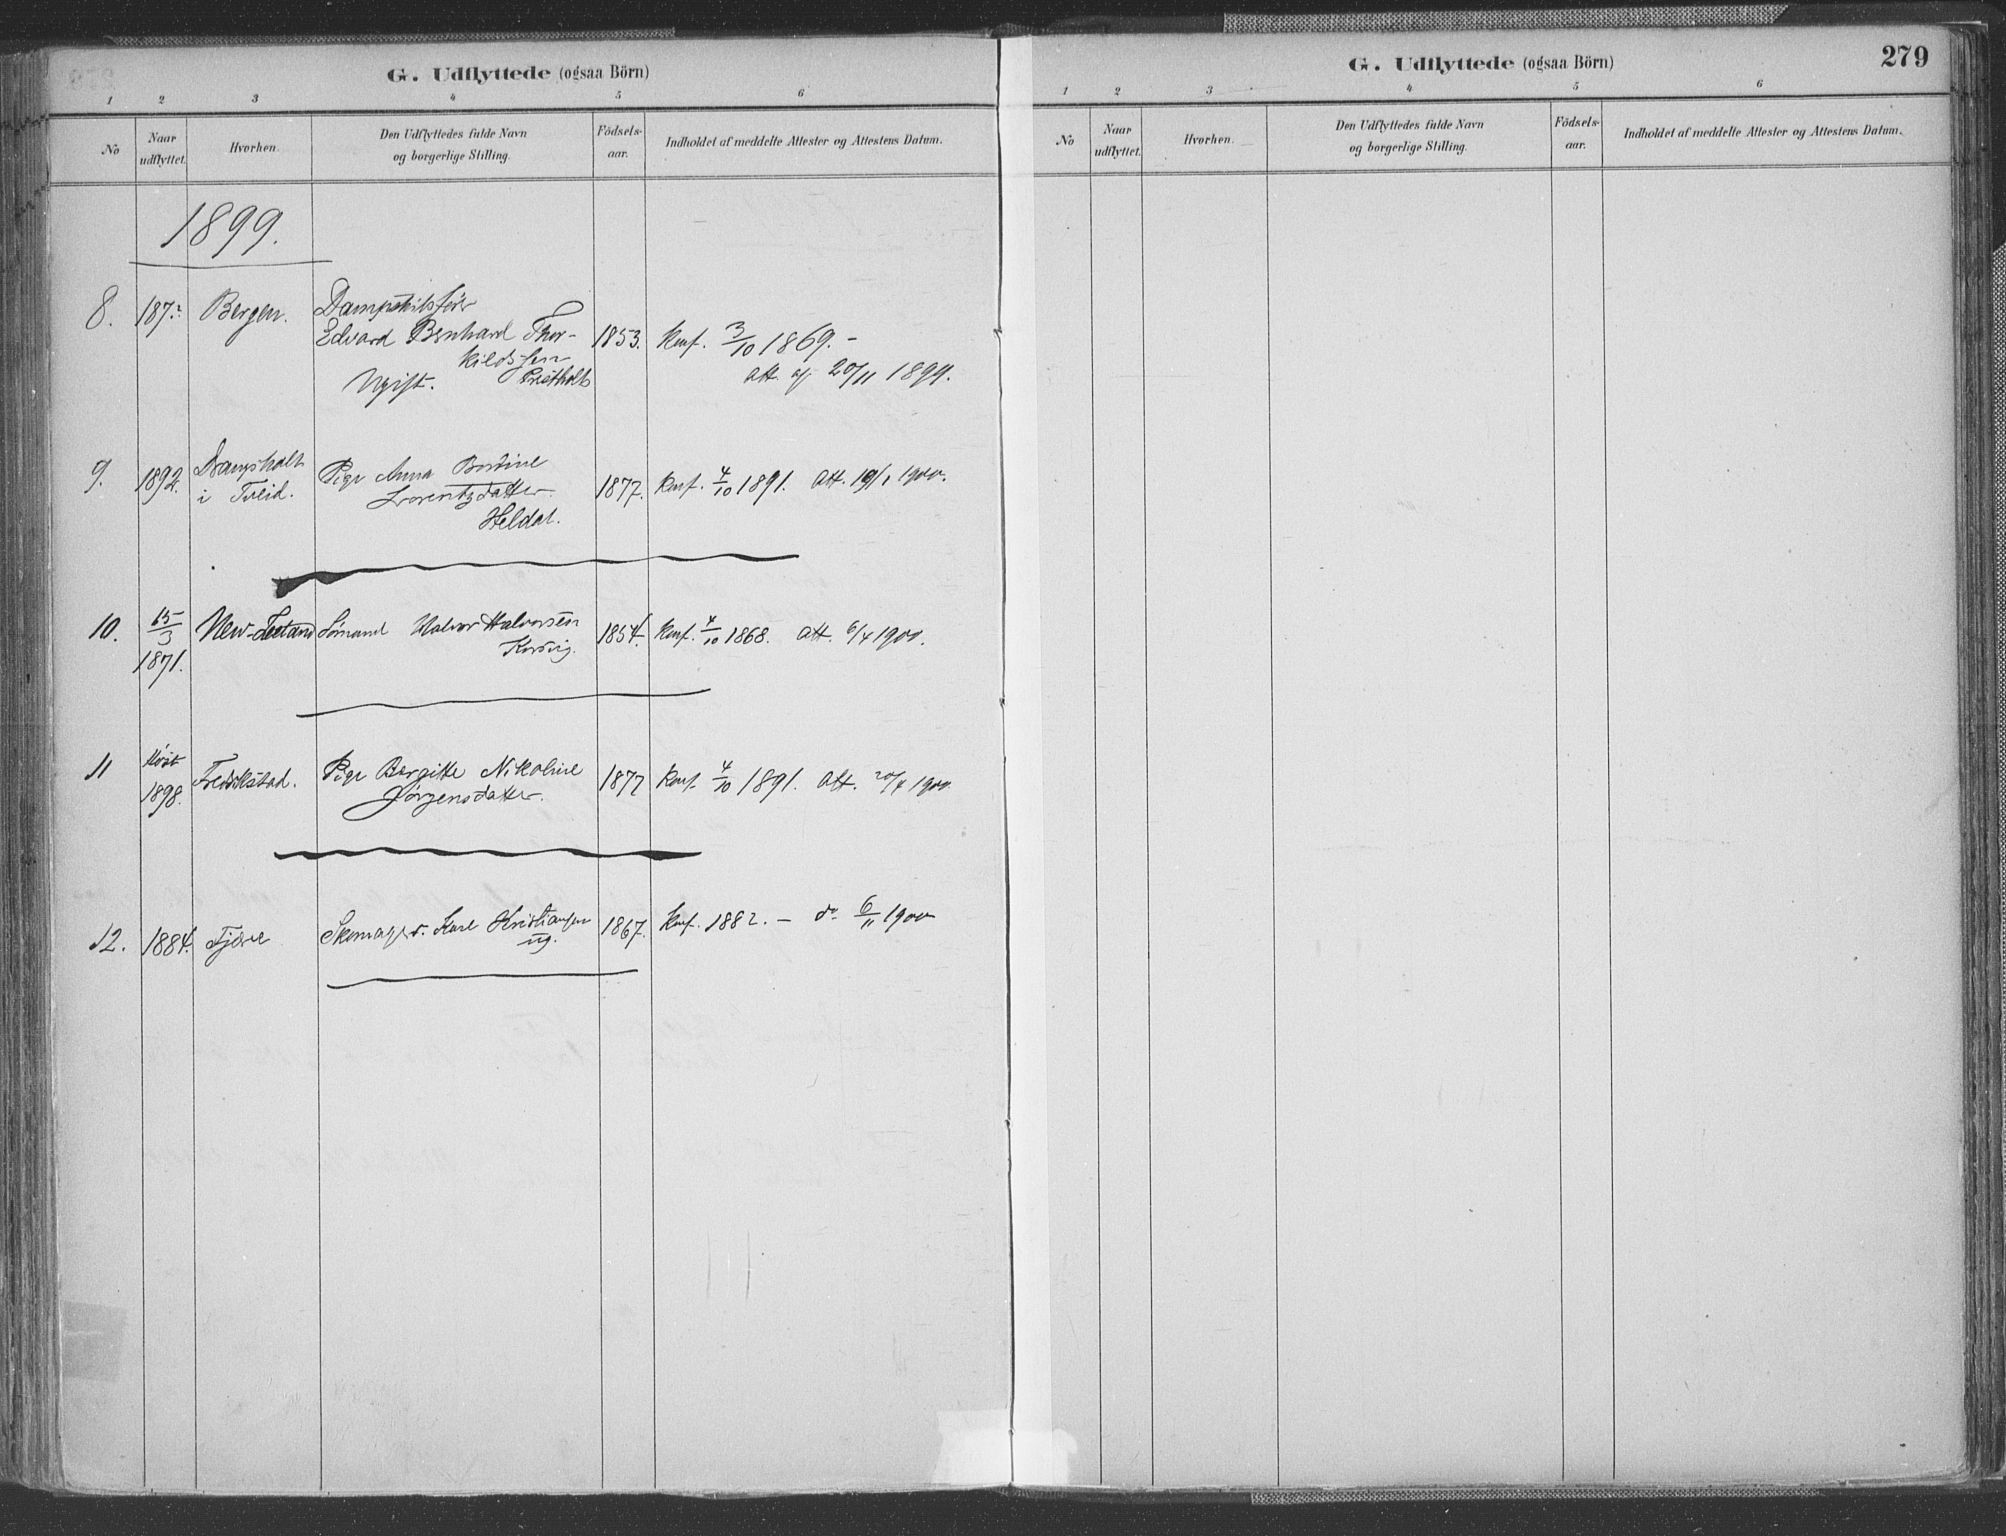 G. Udflyttede (ogsaa Börn)
1 2 3 4 5 6
No
Naar udflyttet.
Hvorhen.
Den Udflyttedes fulde Navn
og borgerlige Stilling.
Födsels-
aar.
Indholdet af meddelte Attester og Attestens Datum.
1899.
8. 187? Bergen. Dampskibsfører
Edvard Bernhard Thor- 1853. Konf. 3/10 1869. –
kildssen
Ugift. att. af 20/11 1899.
9. 1892.
i Tveid. Pige Anna
Lorentzdatter 1877. Konf. 4/10 1891. Att. 19/1 1900.
Heldal.
10. 15/3 New-Zeeland Sømand Halvor Halvorsen 1854. Konf. 4/10 1868. Att. 6/4 1900.
1871. Korsvig.
11 Høst
1898. Fredrikstad. Pige Bergitte Nikoline 1877 Konf. 4/10 1891. Att. 20/4 1900
Jørgensdatter.
12. 1884. Fjære Skomager. Karl Kristiansen 1867. Konf. 1882. – do 6/11 1900
ug.
G. Udflyttede (ogsaa Börn)
279
1 2 3 4 5 6
No
Naar
udflyttet.
Hvorhen.
Den Udflyttedes fulde Navn
og borgerlige Stilling.
Födsels-
aar.
Indholdet af meddelte Attester og Attestens Datum.